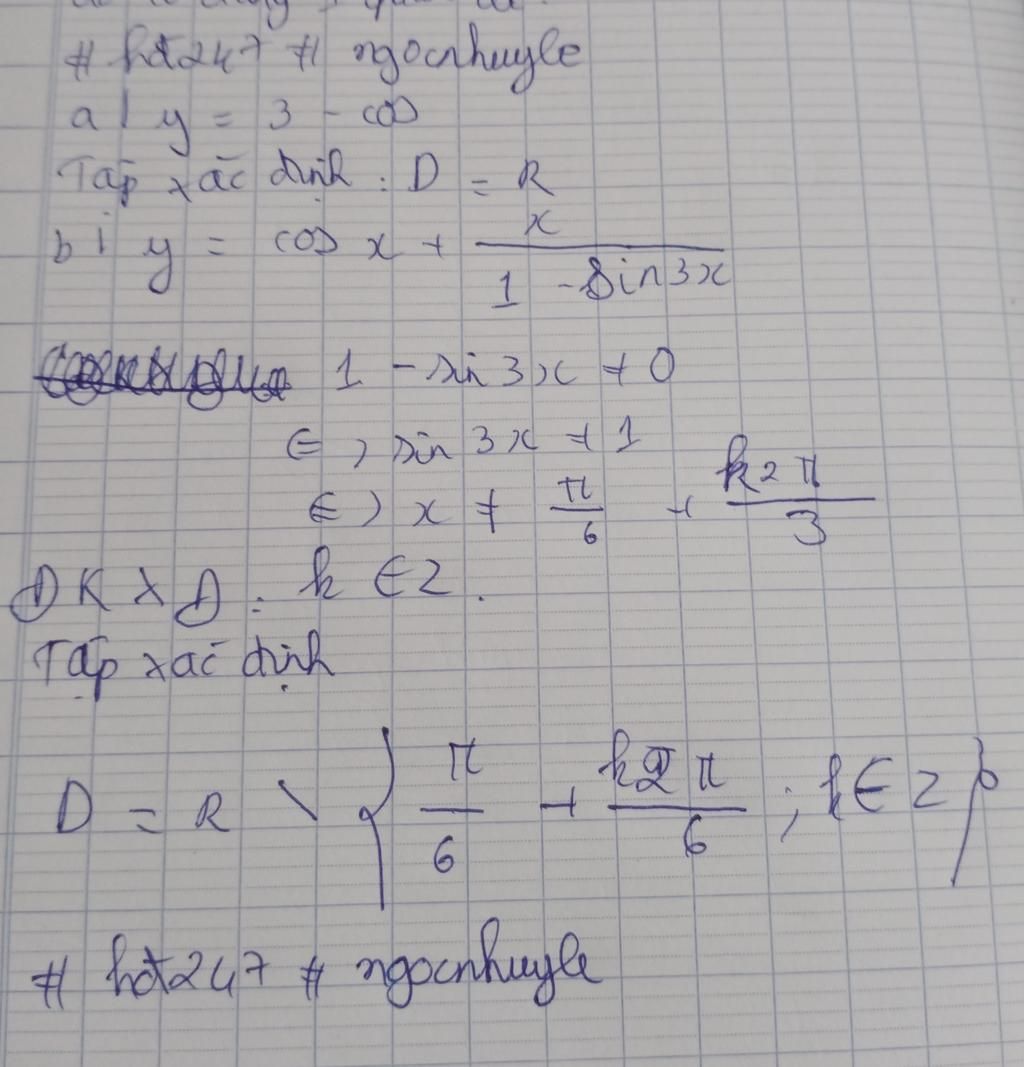 # hđ247 # ngocnhuyle
a / y = 3 - cos
Tập xác định : D = R
b / y = cos x + x / (1 - sin3x)
1 - sin 3x ≠ 0
<=> sin 3x ≠ 1
<=> x ≠ π/6 + k2π/3
ĐKXĐ : k ∈ Z .
Tập xác định
D = R \ { π/6 + k2π/6 ; k ∈ Z }
# hđ247 # ngocnhuyle